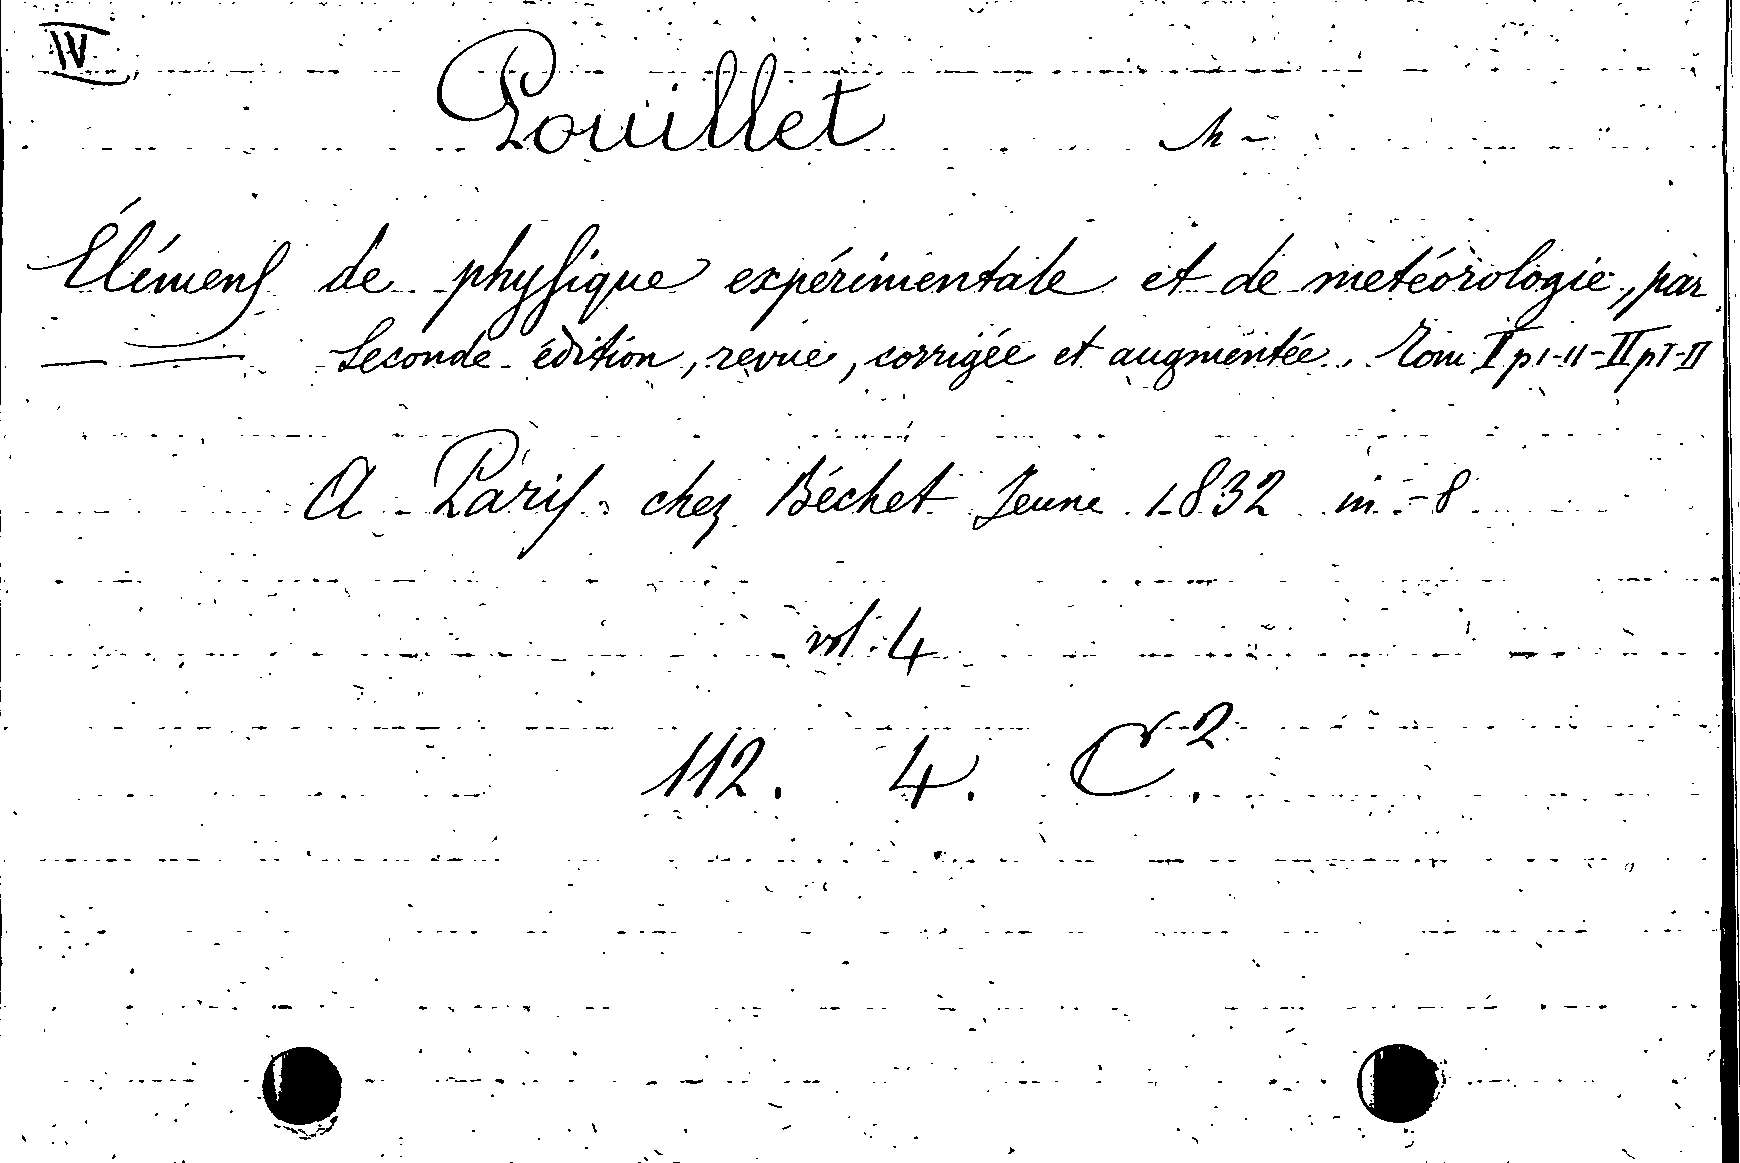 IV
Pouillet M -
Élémens de physique expérimentale et de metéorologie, par
— — Seconde édition, revue, corrigée et augmentée. Tom I p I-II-II p I-II
A Paris chez Béchet Jeune 1832 in-8
vol. 4
112. 4. C 2.